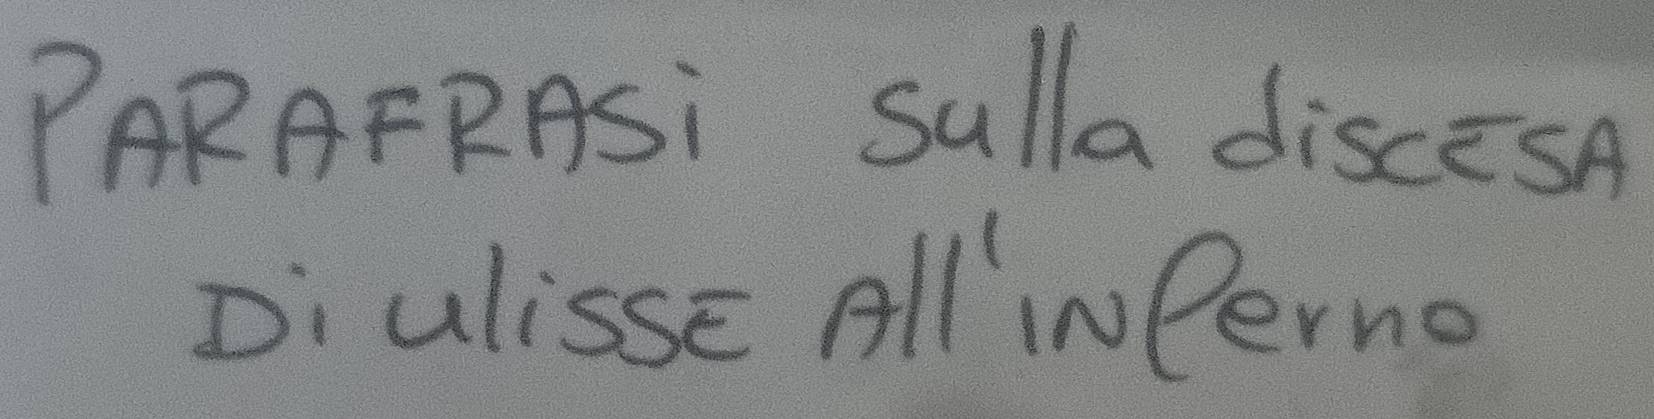 PARAFRASi Sulla discESA
Di ulissE All'INferno